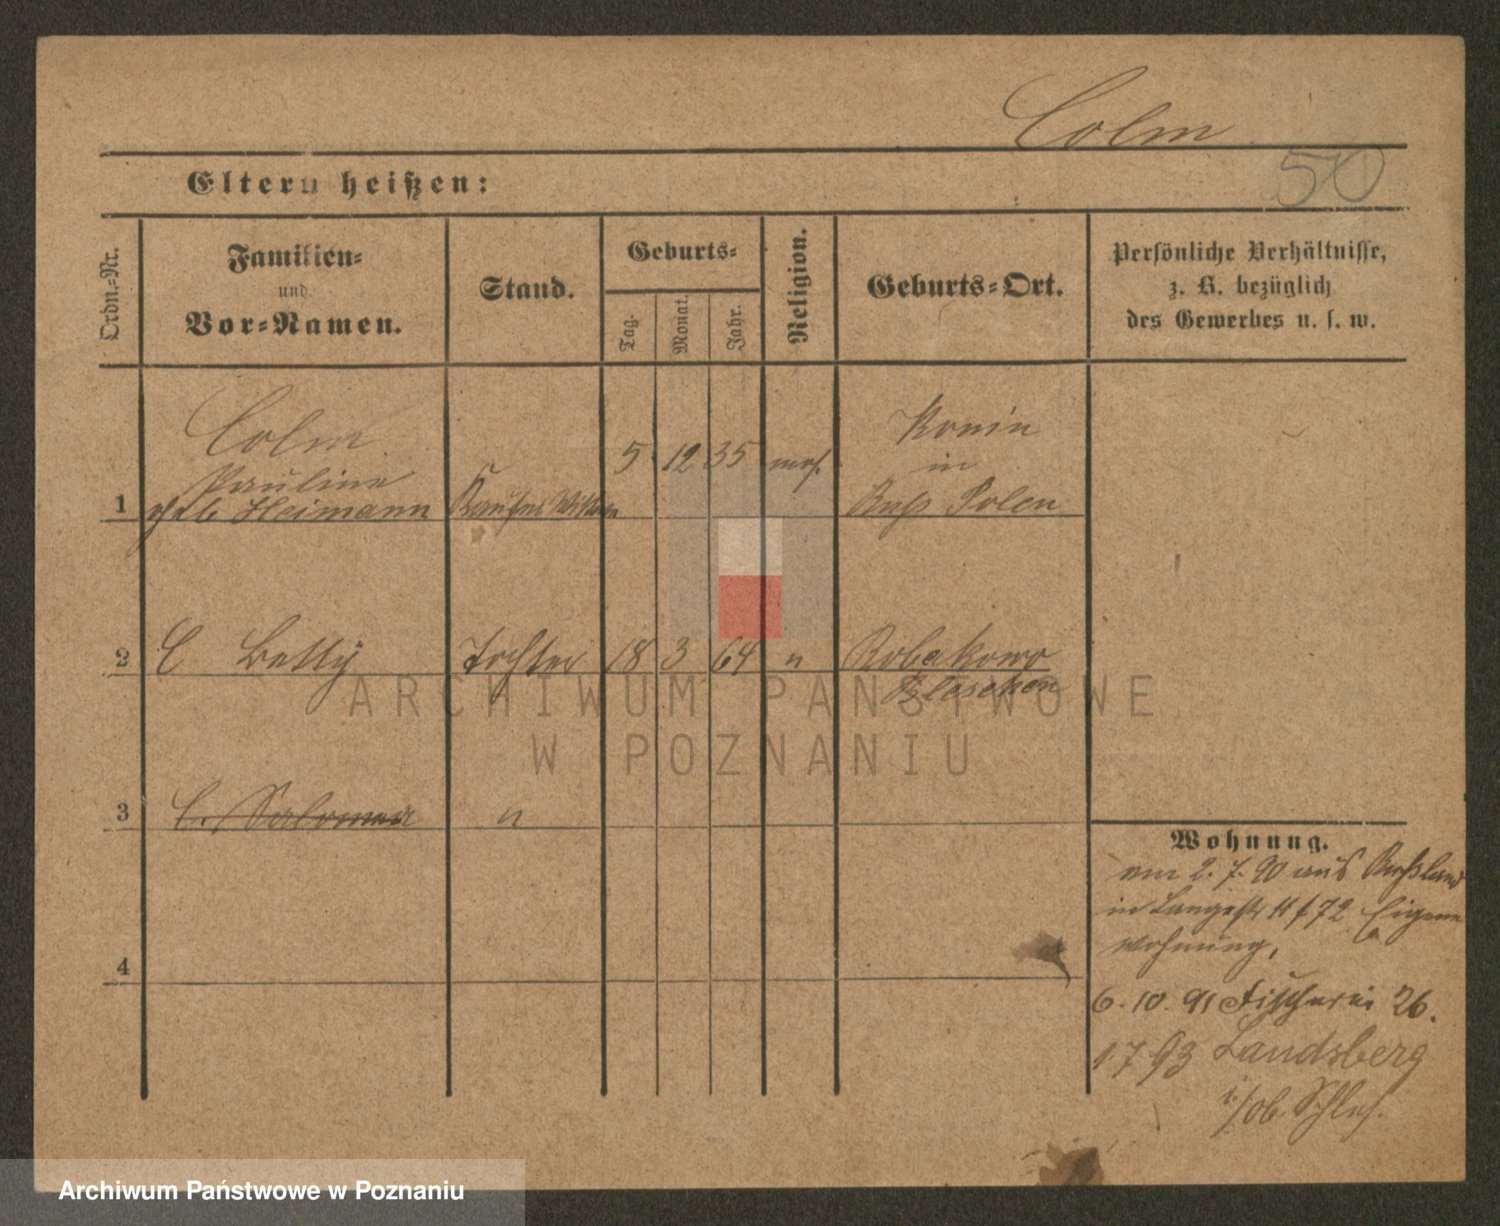 Colm
50
Eltern heißen:
Ordn.-Nr.
Familien-
und
Vor-Namen.
Stand.
Geburts-
Tag.
Monat.
Jahr.
Religion.
Geburts-Ort.
Persönliche Verhältnisse,
z. B. bezüglich
des Gewerbes u. s. w.
Colm
Pauline
geb Heimann
1
5 12 35 mos.
Konin
in
Russ Polen
2 C Betty Tochter 18 3 64 " Robakowo
Pleschen
3 C. Salomea "
4
Wohnung.
am 2. 7. 90 aus Rußland
in Langestr 11 / 72 Eigene
Wohnung,
6. 10. 91 Fischerei 26.
1 7 93 Landsberg
i/ob. Schles.
ARCHIWUM PAŃSTWOWE
W POZNANIU
Archiwum Państwowe w Poznaniu